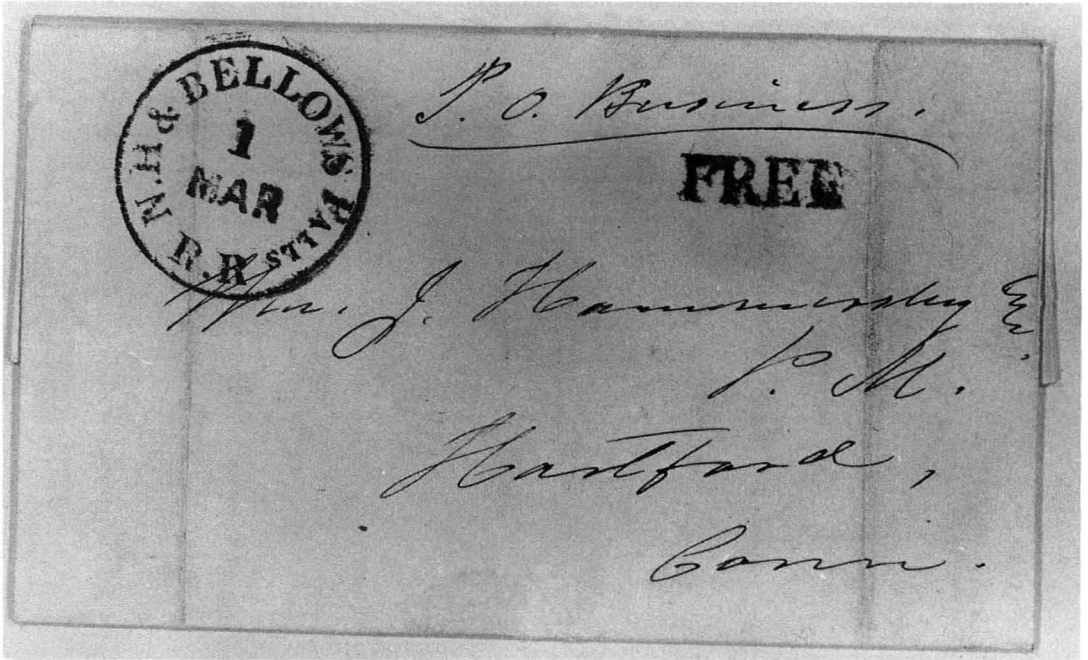 N.H & BELLOWS FALLS R.R
1
MAR
P. O. Business.
FREE
Wm. J. Hammersley Esq.
P. M.
Hartford,
Conn.